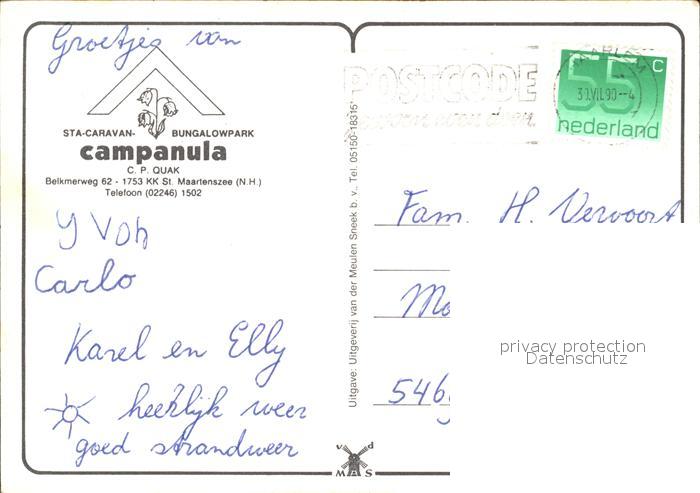 Groetjes van
STA-CARAVAN- BUNGALOWPARK
campanula
C. P. QUAK
Belkmerweg 62 - 1753 KK St. Maartenszee (N.H.)
Telefoon (02246) 1502
Yvon
Carlo
Karel en Elly
heerlijk weer
goed strandweer
Uitgave: Uitgeverij van der Meulen Sneek b. v., Tel. 05150-18315
v d
MAS
POSTCODE
gewoon even doen.
HAARLEM
30.VII.90--4
55 c
nederland
Fam. H. Vervoort
Mo
546
privacy protection
Datenschutz